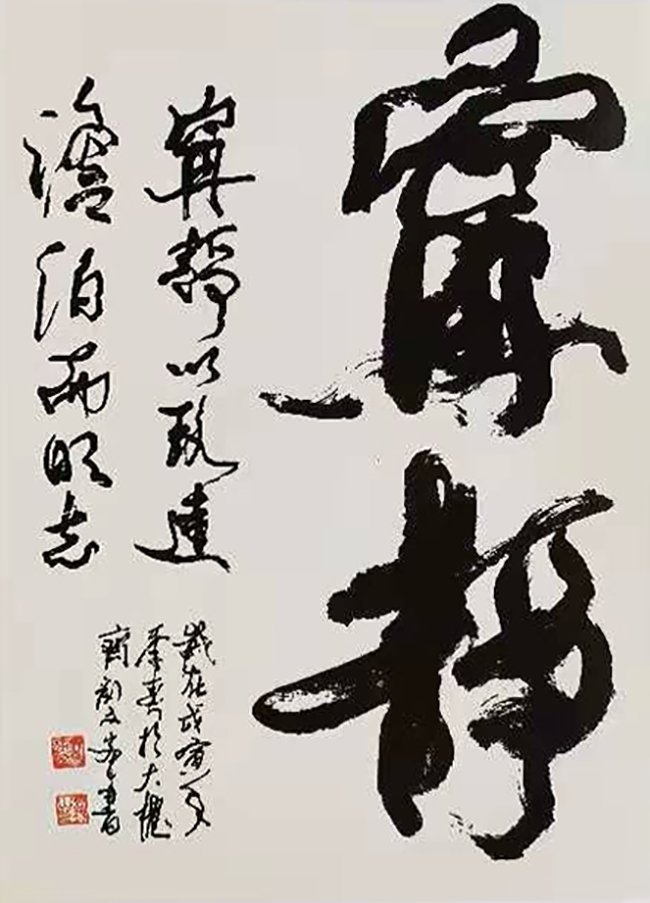 寧靜
寧靜以致遠
澹泊而明志
歲在戊寅年
季春於大槐
齋劉文書